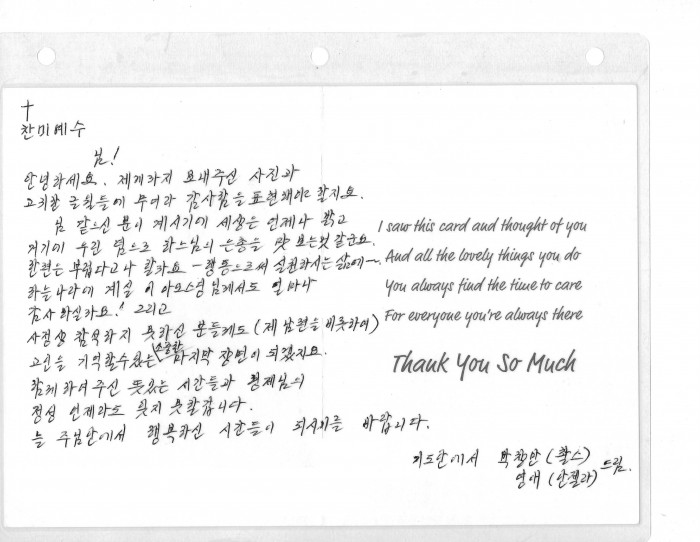 †
찬미예수
님!
안녕하세요. 제게까지 보내주신 사진과
고귀한 글월들이 무어라 감사함을 표현해야 할지요.
님 같으신 분이 계시기에 세상은 언제나 밝고
거기에 우린 덤으로 하느님의 은총을 맛 보는것 같군요.
한편은 부럽다고나 할까요 - 행동으로써 실천하시는 삶에~.
하늘나라에 계실 이 아모스형님께서도 얼마나
감사 하실까요! 그리고
사정상 참석하지 못하신 분들께도 (제 남편을 비롯하여)
고인을 기억할수있는 소중한 마지막 장면이 되겠지요.
함께 하여주신 뜻있는 시간들과 형제님의
정성 언제라도 잊지 못할겁니다.
늘 주님안에서 행복하신 시간들이 되시기를 바랍니다.
기도안에서 박창만 (촬스)
영애 (안젤라) 드림.
I saw this card and thought of you
And all the lovely things you do
You always find the time to care
For everyone you're always there
Thank You So Much